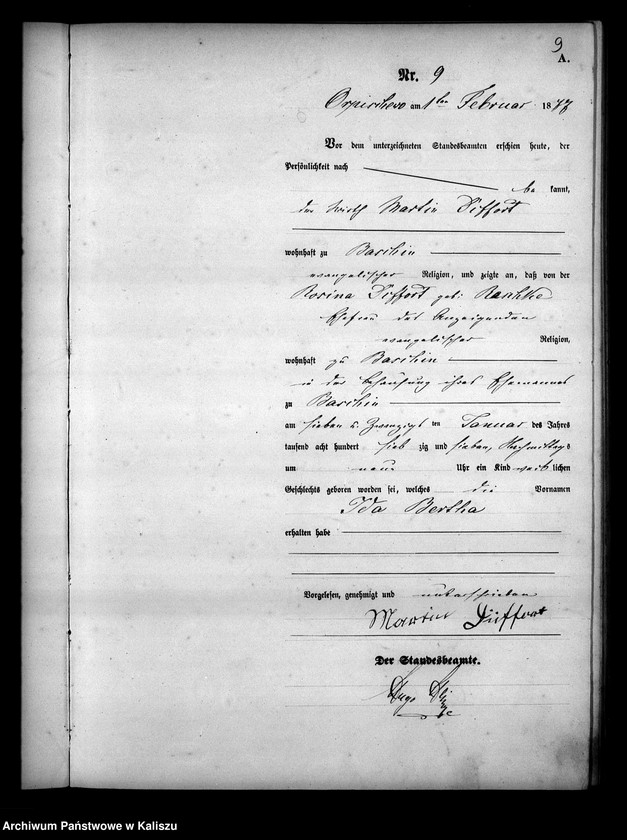 9
A.
Nr. 9
Orpischewo am 1ten Februar 1877
Vor dem unterzeichneten Standesbeamten erschien heute, der
Persönlichkeit nach
be kannt,
der Wirth Martin Diffort
wohnhaft zu Baschin
evangelischer Religion, und zeigte an, daß von der
Rosina Diffort geb: Raschke
Ehefrau des Anzeigenden
evangelischer Religion,
wohnhaft zu Baschin
in der Behausung ihres Ehemannes
zu Baschin
am sieben u. zwanzigs ten Januar des Jahres
tausend acht hundert sieb zig und sieben, Nachmittags
um neun Uhr ein Kind weib lichen
Geschlechts geboren worden sei, welches die Vornamen
Ida Bertha
erhalten habe
Vorgelesen, genehmigt und unterschrieben
Martin Düffort
Der Standesbeamte.